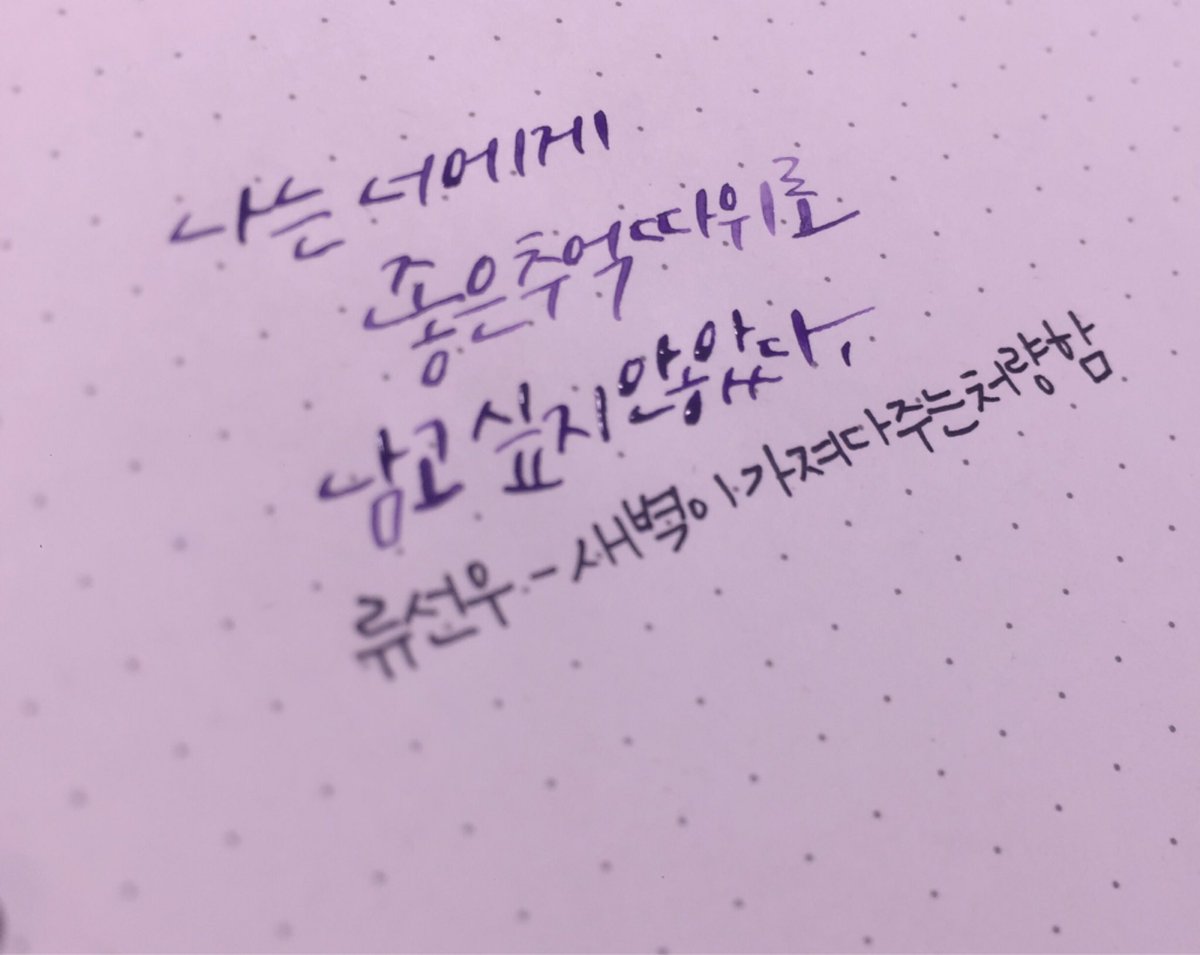 나는 너에게
좋은 추억 따위로
남고 싶지 않았다,
류선우 - 새벽이 가져다 주는 처량함